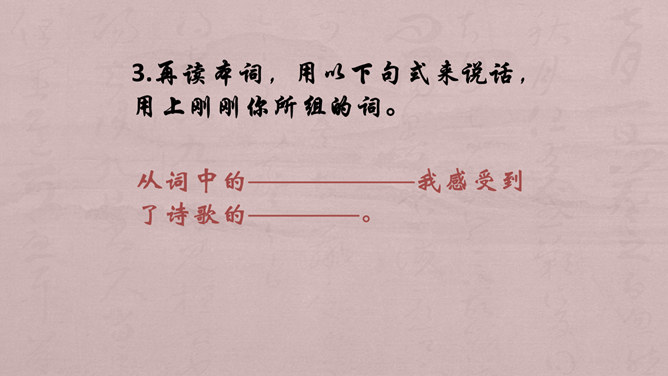 3.再读本词，用以下句式来说话，
用上刚刚你所组的词。
从词中的——————我感受到
了诗歌的————。